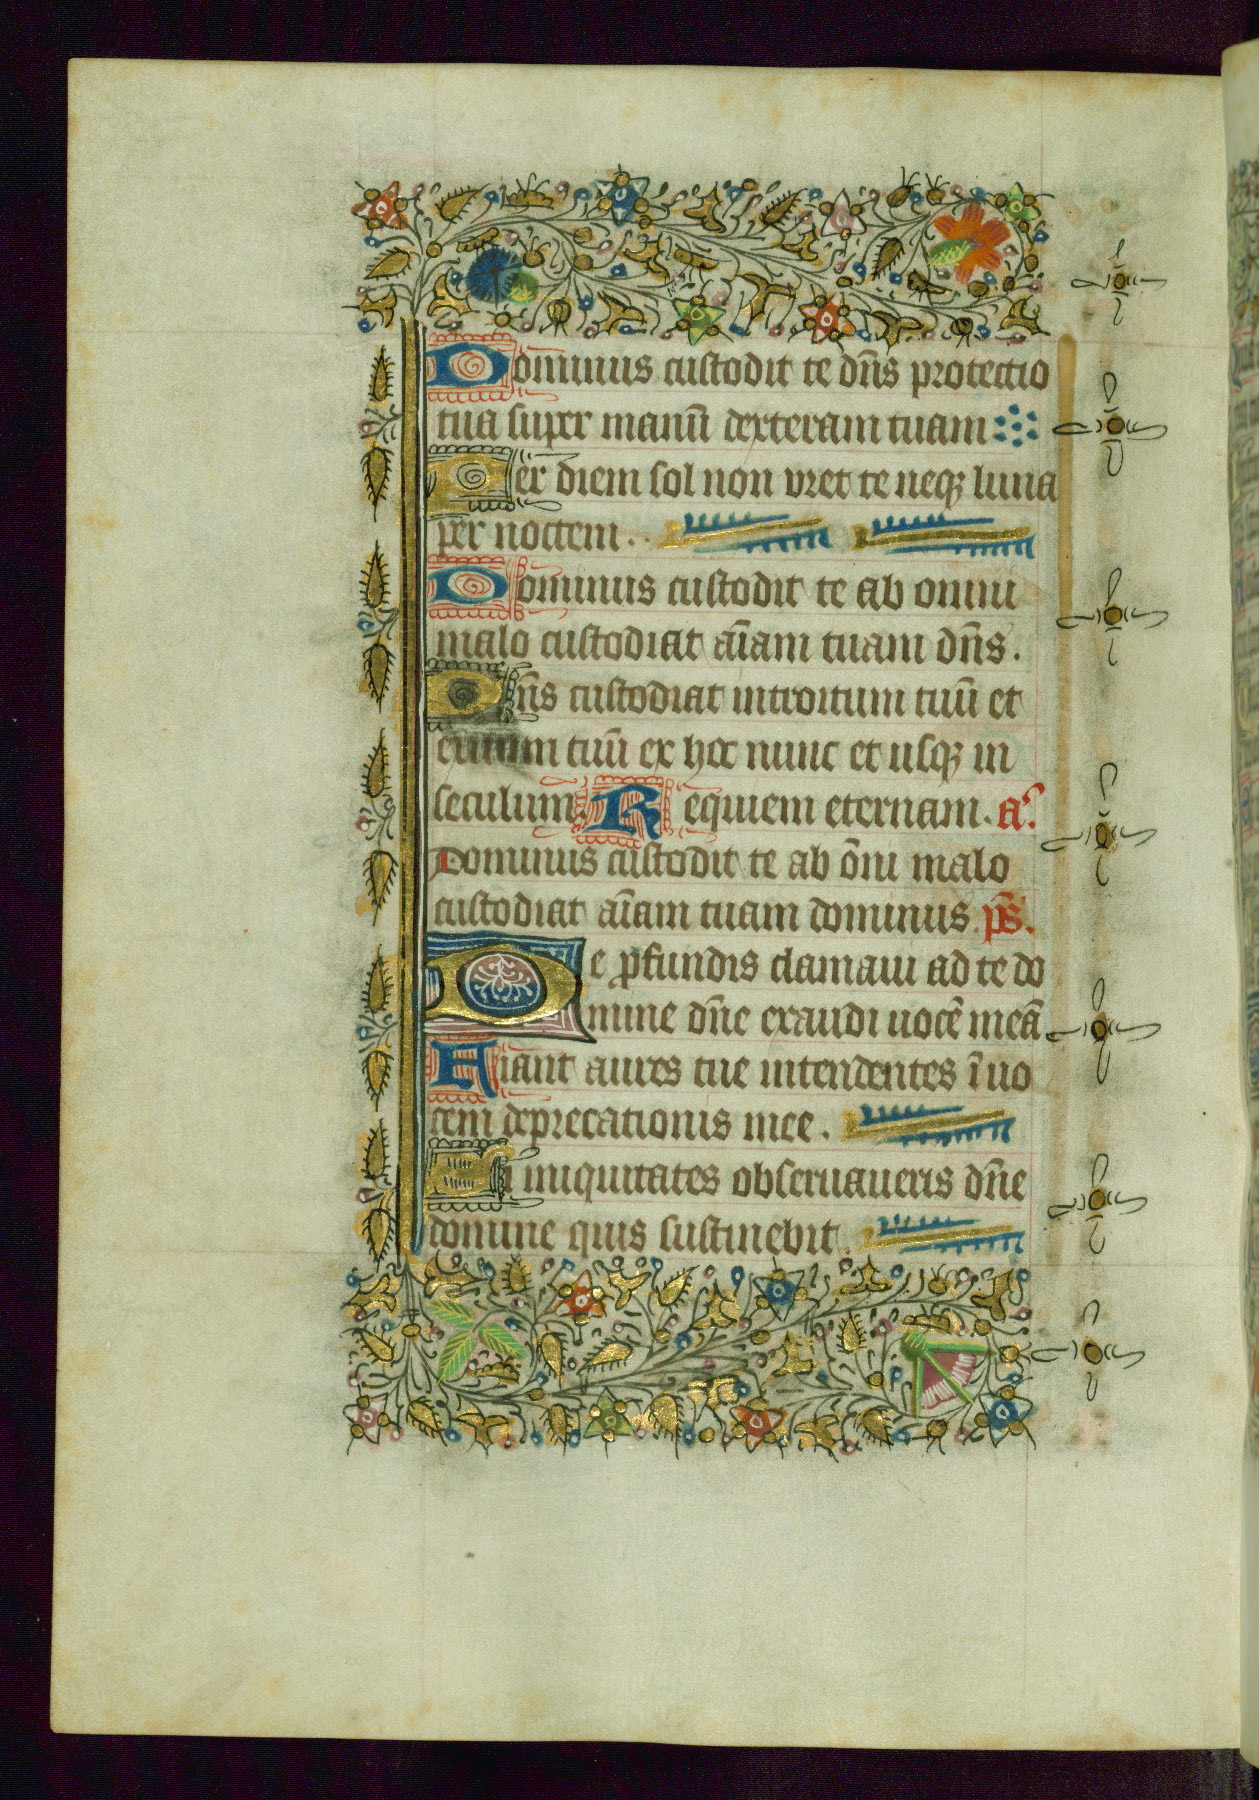 Dominus custodit te dn̄s protectio
tua super manū dexteram tuam
Per diem sol non vret te neqꝫ luna
per noctem.
Dominus custodit te ab omni
malo custodiat aīam tuam dn̄s.
Dn̄s custodiat introitum tuū et
exitum tuū ex hoc nunc et usqꝫ in
seculum. Requiem eternam. a᷒.
Dominus custodit te ab ōni malo
custodiat aīam tuam dominus. ps̄.
De ꝓfundis clamaui ad te do
mine dn̄e exaudi uocē meā
Fiant aures tue intendentes ī uo
cem deprecationis mee.
Si iniquitates obseruaueris dn̄e
domine quis sustinebit.